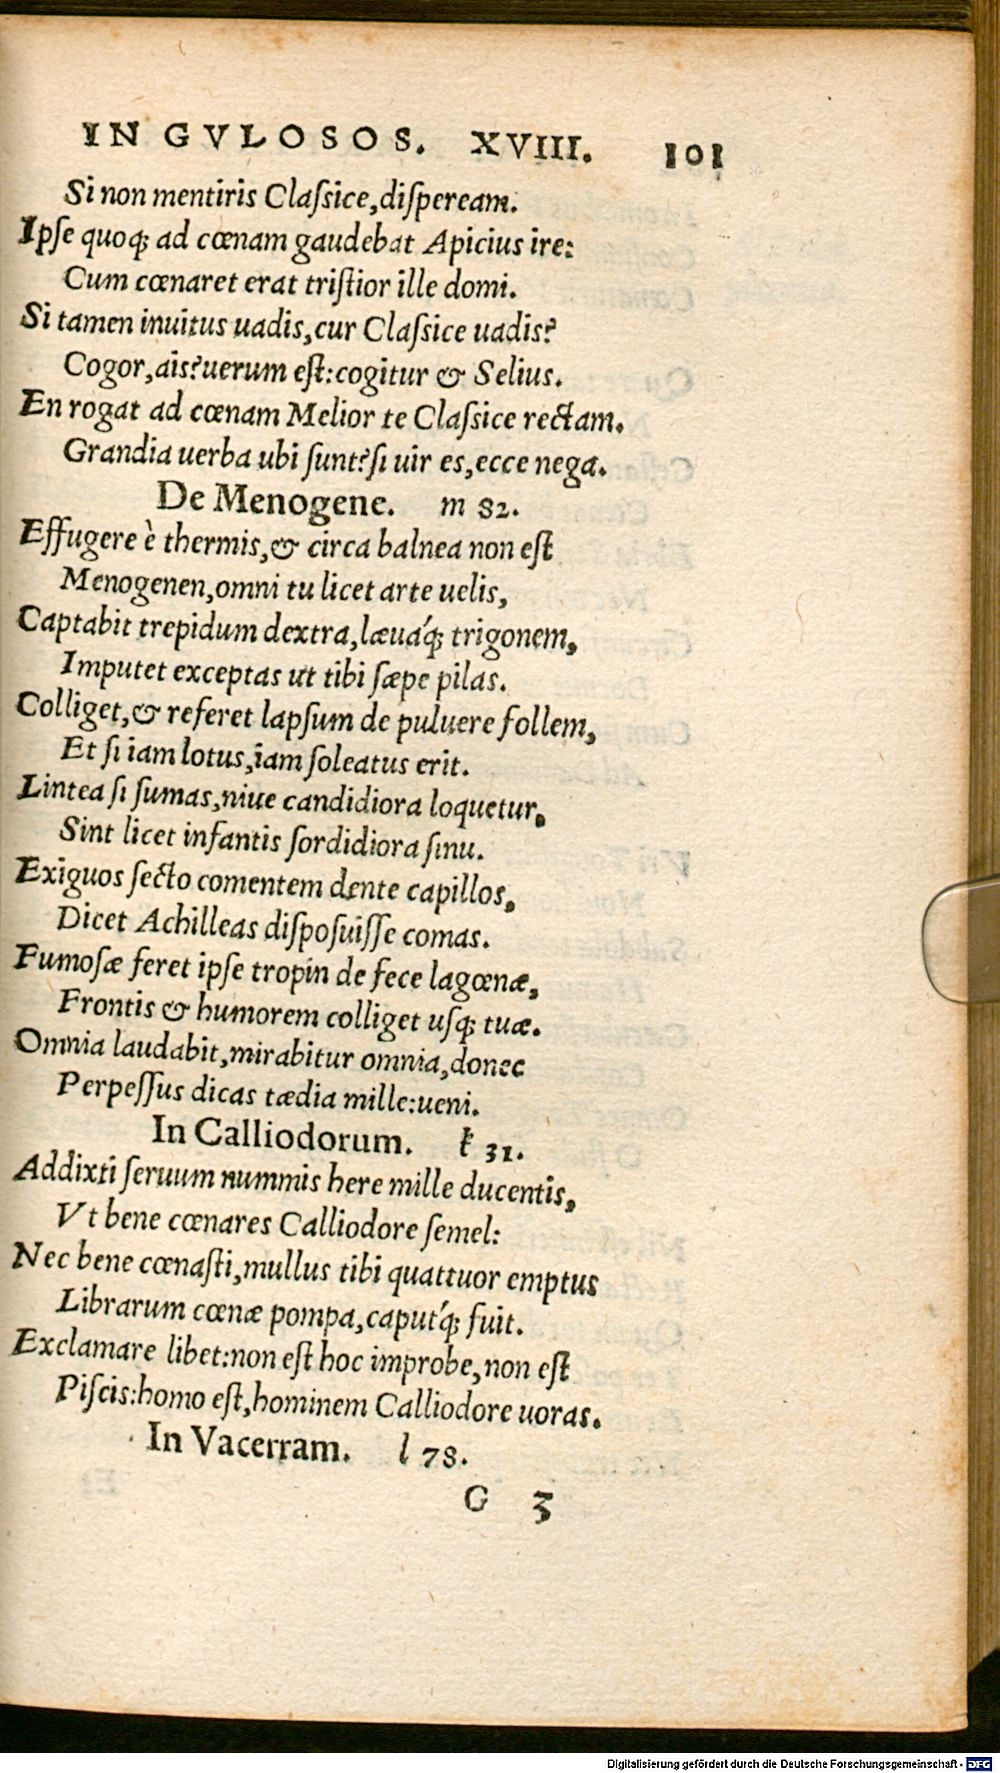 IN GVLOSOS. XVIII. 101
Si non mentiris Claſsice,diſpeream.
Ipſe quoq; ad cœnam gaudebat Apicius ire:
Cum cœnaret erat triſtior ille domi.
Si tamen inuitus uadis,cur Claſsice uadis?
Cogor,ais?uerum eſt:cogitur & Selius.
En rogat ad cœnam Melior te Claſsice rectam.
Grandia uerba ubi ſunt?ſi uir es,ecce nega.
De Menogene. m 82.
Effugere è thermis,& circa balnea non eſt
Menogenen,omni tu licet arte uelis,
Captabit trepidum dextra,læuáq; trigonem,
Imputet exceptas ut tibi ſæpe pilas.
Colliget,& referet lapſum de puluere follem,
Et ſi iam lotus,iam ſoleatus erit.
Lintea ſi ſumas,niue candidiora loquetur,
Sint licet infantis ſordidiora ſinu.
Exiguos ſecto comentem dente capillos,
Dicet Achilleas diſpoſuiſſe comas.
Fumoſæ feret ipſe tropin de fece lagœnæ,
Frontis & humorem colliget uſq; tuæ.
Omnia laudabit,mirabitur omnia,donec
Perpeſſus dicas tædia mille:ueni.
In Calliodorum. k 31.
Addixti ſeruum nummis here mille ducentis,
Vt bene cœnares Calliodore ſemel:
Nec bene cœnaſti,mullus tibi quattuor emptus
Librarum cœnæ pompa,caput́q; fuit.
Exclamare libet:non eſt hoc improbe,non eſt
Piſcis:homo eſt,hominem Calliodore uoras.
In Vacerram. l 78.
G 3
Digitalisierung gefördert durch die Deutsche Forschungsgemeinschaft - DFG